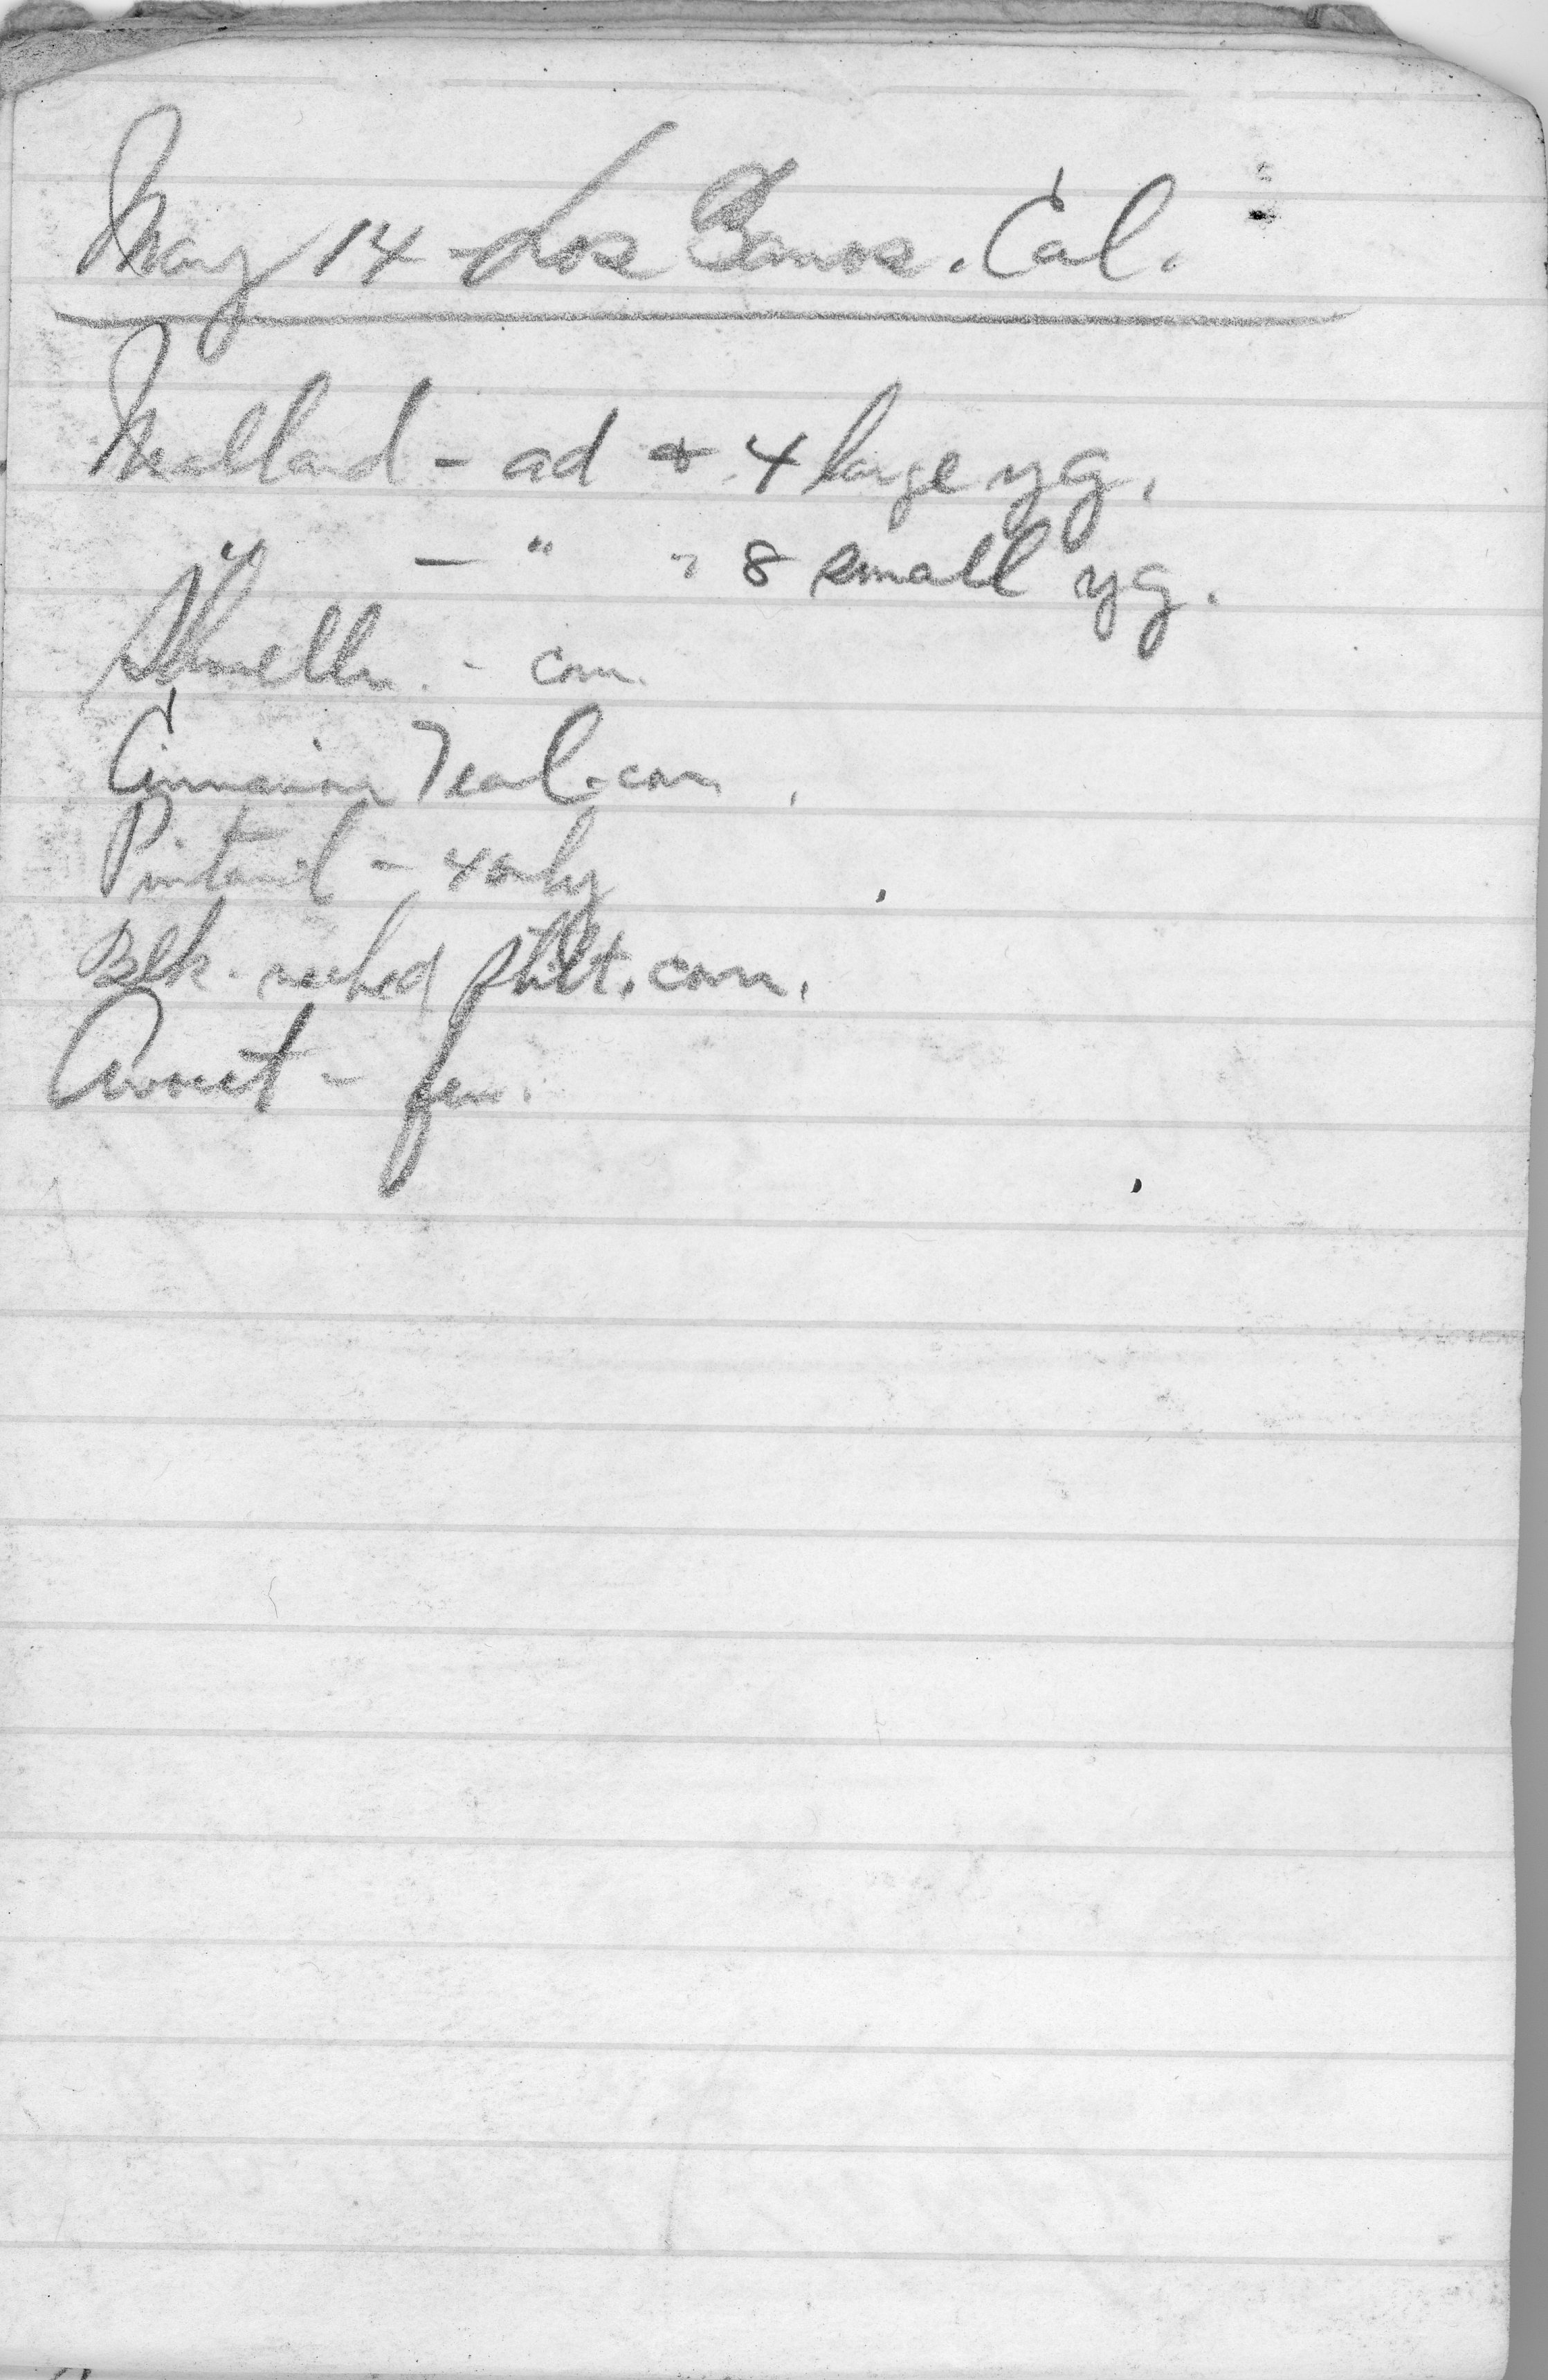 May 14 - Los Banos. Cal.
Mallard - ad & 4 large yg.
" - " " 8 small yg.
Shoveller. - com.
Cinnamon Teal - com.
Pintail - 4 only
Blk-necked stilt. com.
Avocet - few.